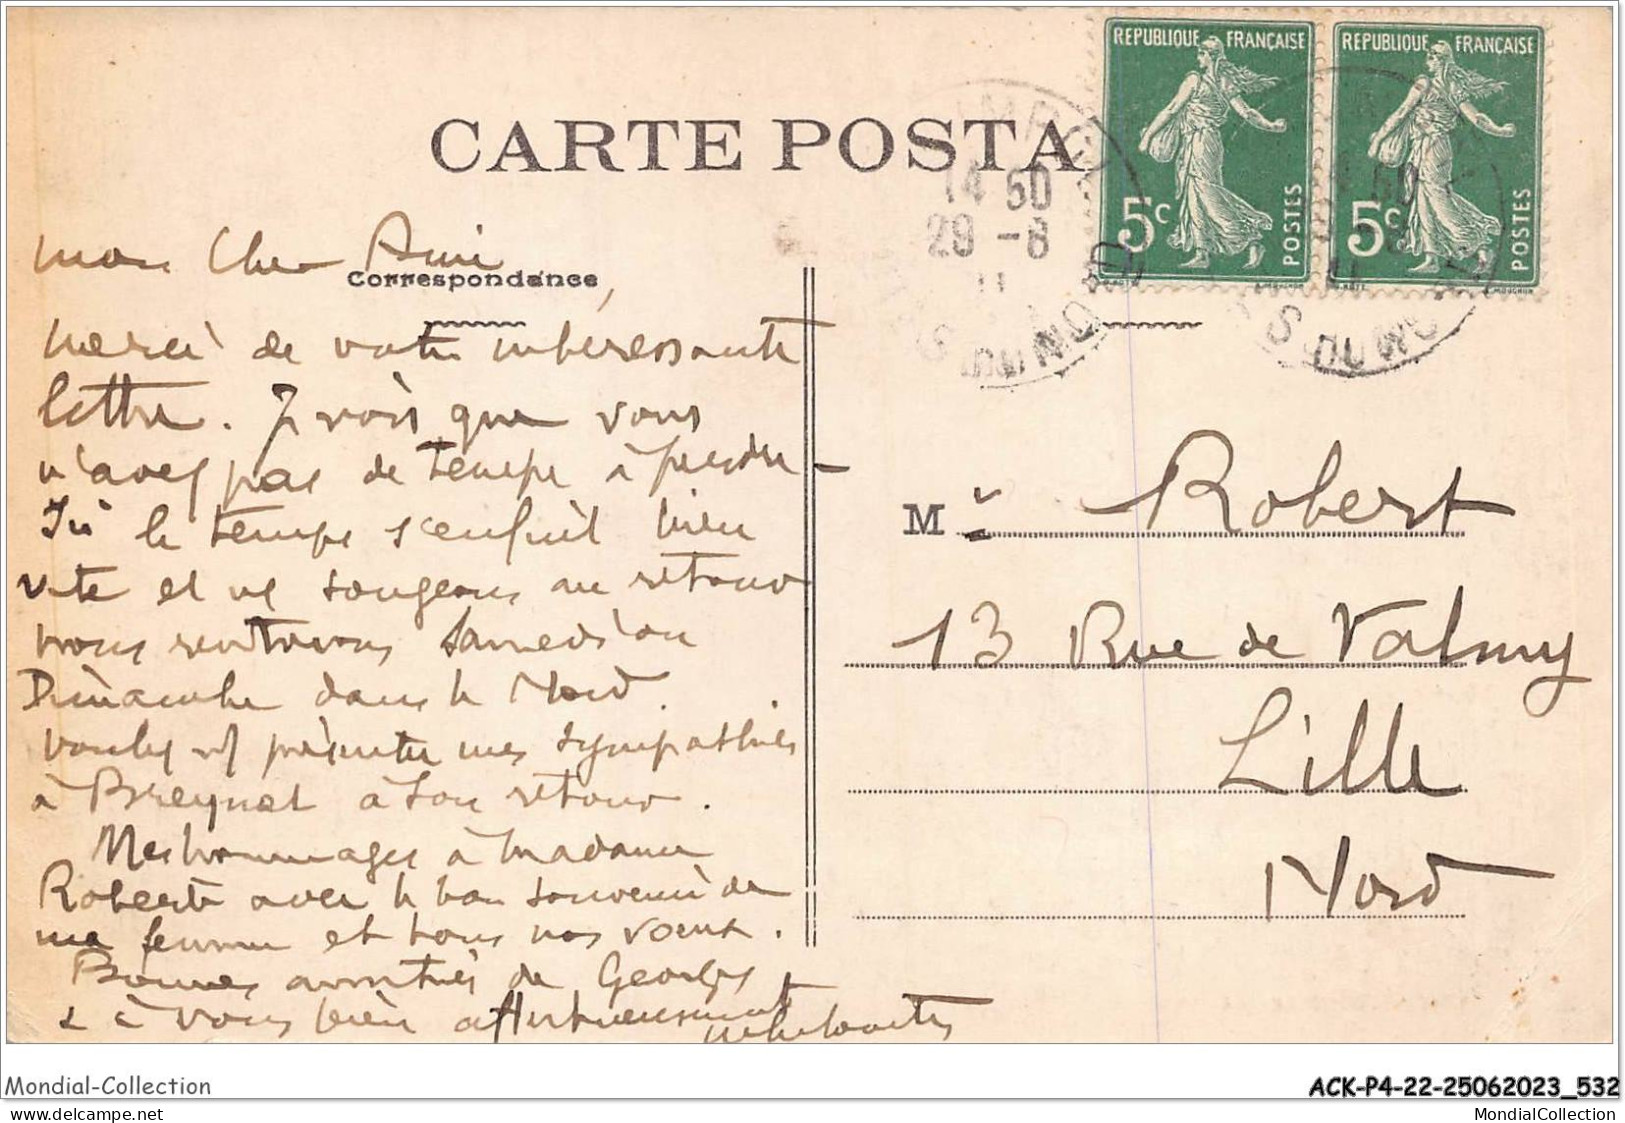 REPUBLIQUE FRANÇAISE
5c POSTES
REPUBLIQUE FRANÇAISE
5c POSTES
CARTE POSTA
14 50
29 -8
11
S DU NORD
S DU NORD
Correspondance
mon Cher Ami,
Merci de votre intéressante
lettre. Je vois que vous
n'avez pas de temps à perdre -
Ici le temps s'enfuit bien
vite et ns songeons au retour
nous rentrons Samedi ou
Dimanche dans le Nord.
Voulez vs présenter mes sympathies
à Breynat à son retour.
Mes hommages à Madame
Robert avec le bon souvenir de
ma femme et tous nos vœux.
Bonnes amitiés de Georges
& à vous bien affectueusement
Mr Robert
13 Rue de Valmy
Lille
Nord
Mondial-Collection
ACK-P4-22-25062023_532
delcampe.net
MondialCollection